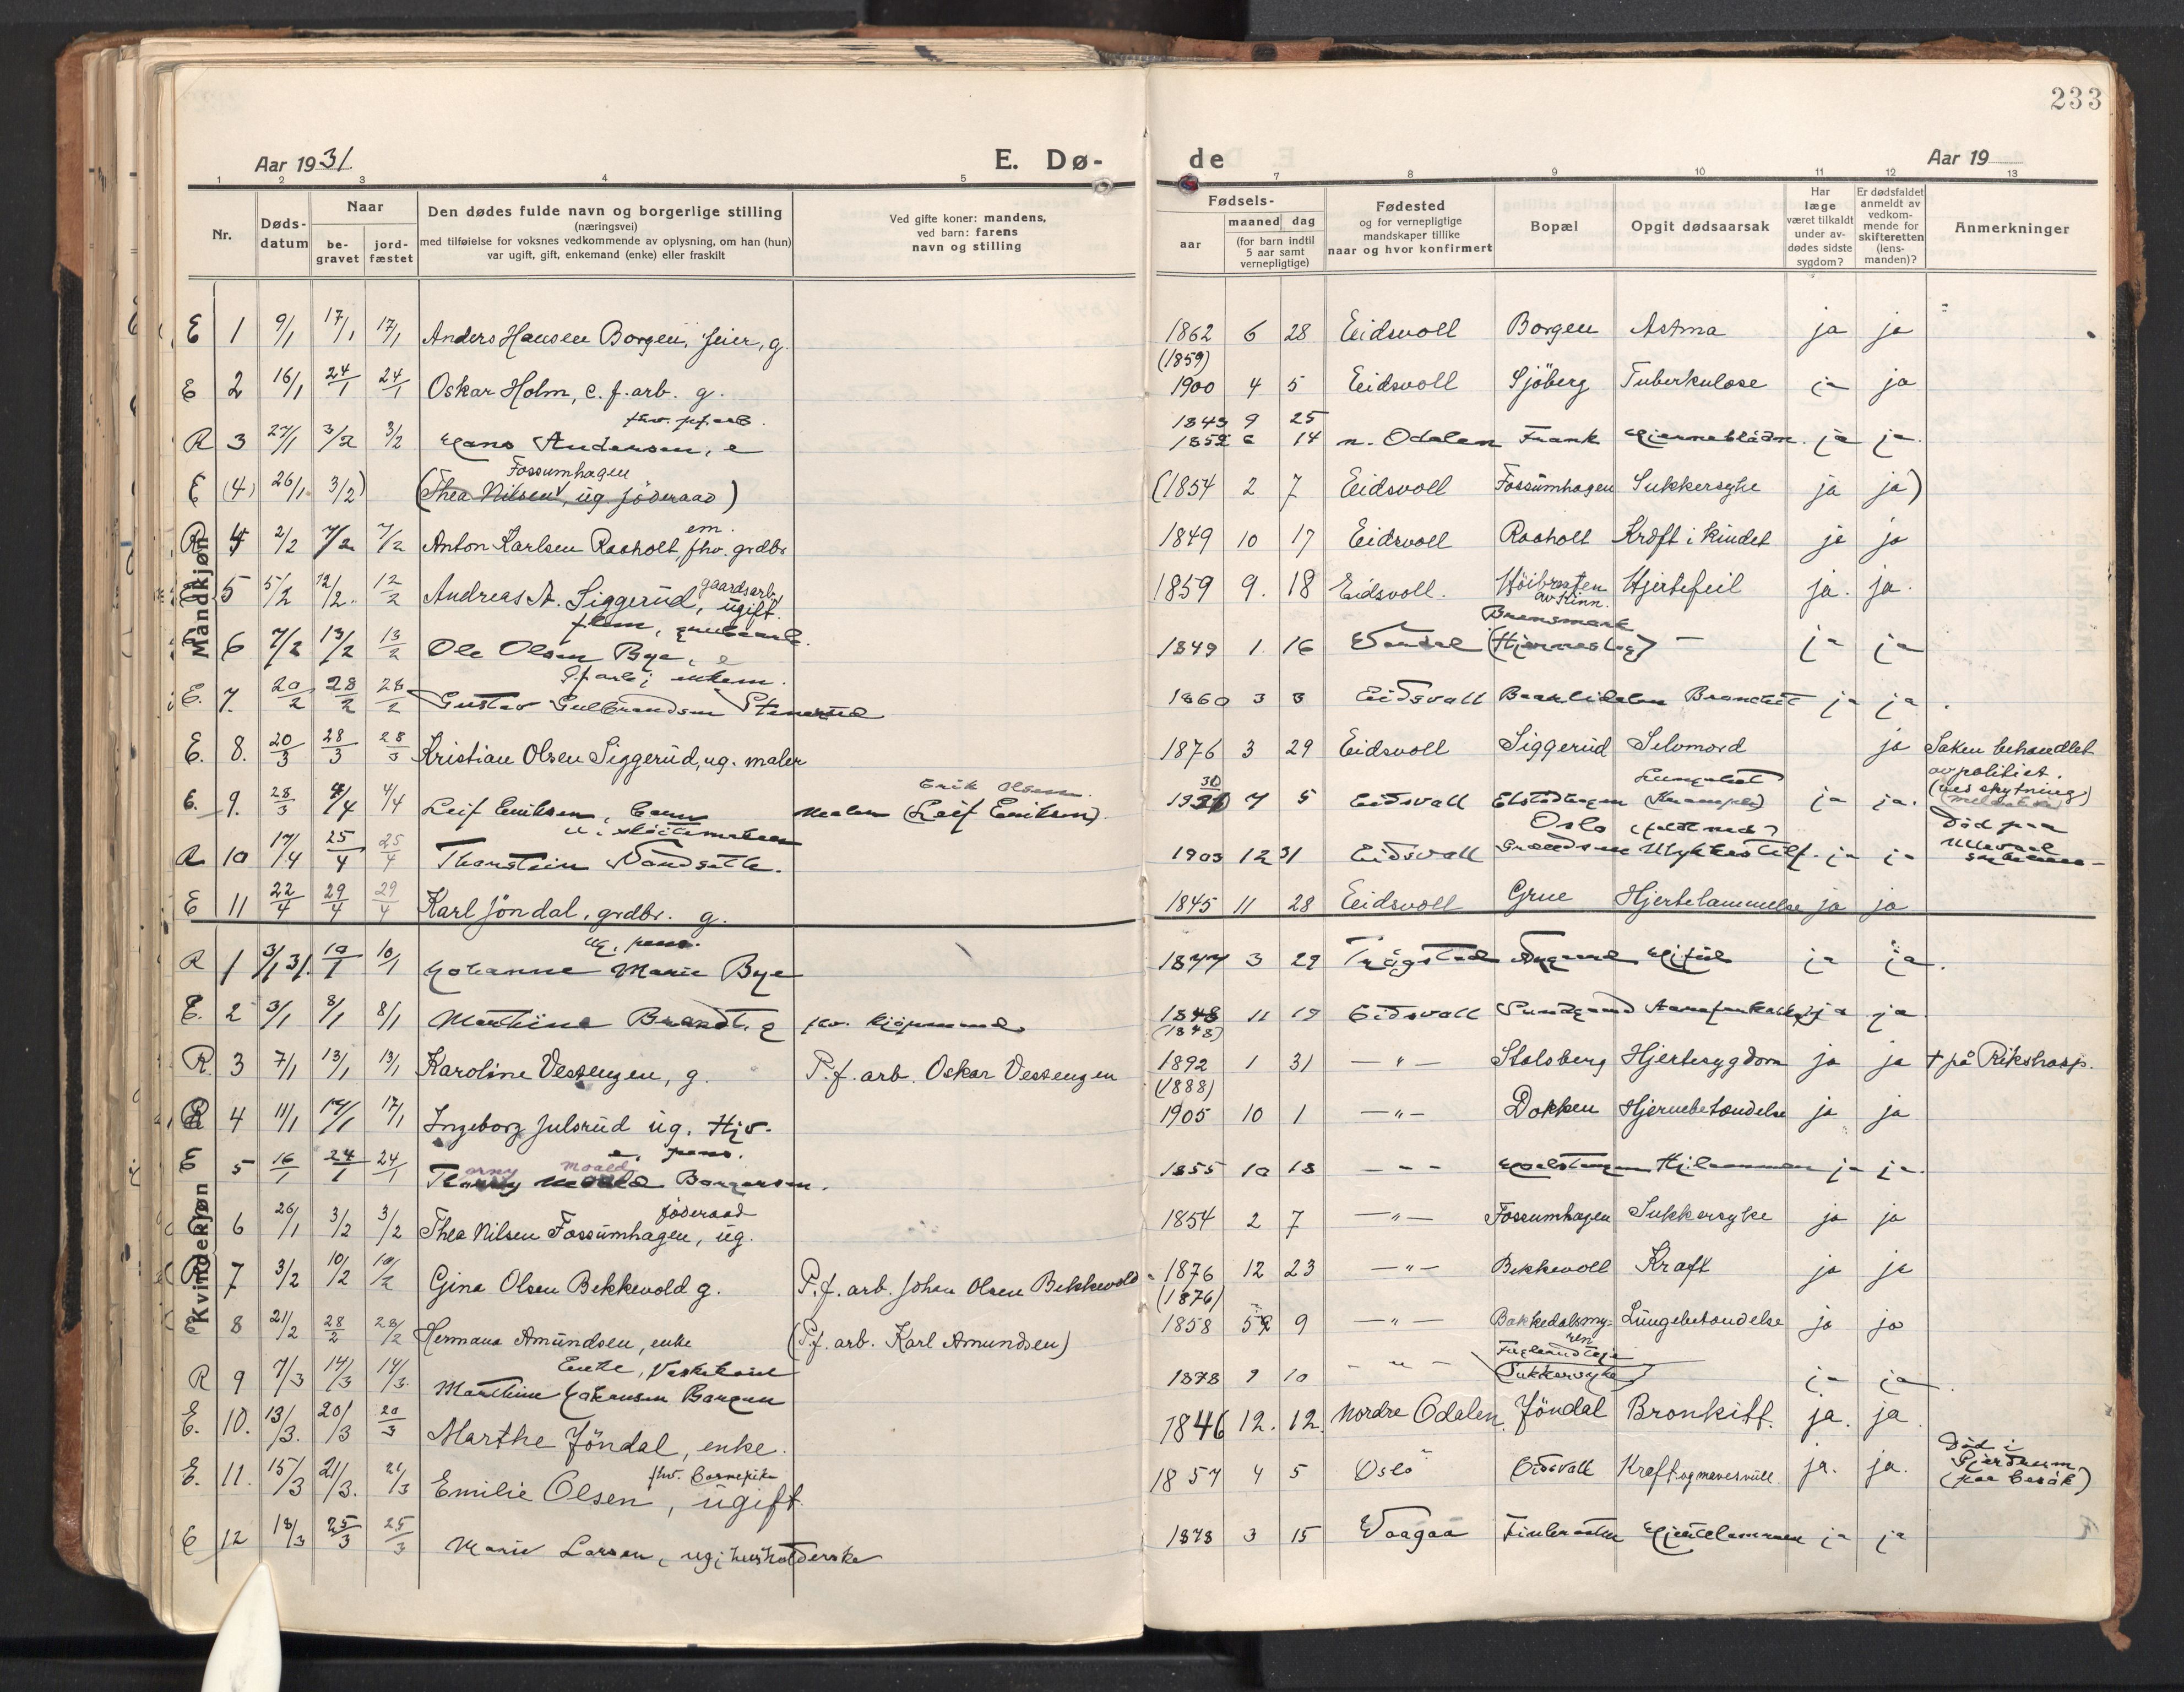 233
Aar 1931
E. Dø-
de
Aar 19
1 2 3 4 5 7 8 9 10 11 12 13
Nr.
Døds-
datum
Naar
be-
gravet
jord-
fæstet
Den dødes fulde navn og borgerlige stilling
(næringsvei)
med tilføielse for voksnes vedkommende av oplysning, om han (hun)
var ugift, gift, enkemand (enke) eller fraskilt
Ved gifte koner: mandens,
ved barn: farens
navn og stilling
Fødsels-
aar
maaned dag
(for barn indtil
5 aar samt
vernepligtige)
Fødested
og for vernepligtige
mandskaper tillike
naar og hvor konfirmert
Bopæl
Opgit dødsaarsak
Har
læge
været tilkaldt
under av-
dødes sidste
sygdom?
Er dødsfaldet
anmeldt av
vedkom-
mende for
skifteretten
(lens-
manden)?
Anmerkninger
Mandkjøn
E 1 9/1 17/1 17/1 Anders Hansen Borgen, feier, g. 1862 6 28 Eidsvoll Borgen Astma ja ja
(1859)
E 2 16/1 24/1 24/1 Oskar Holm, c. f. arb. g. 1900 4 5 Eidsvoll Sjöberg Tuberkulose ja ja
1843 9 25
R 3 27/1 3/2 3/2 Hans Andersen, e 1852 6 14 n. Odalen Frank Hjerneblødn. ja ja
Fossumhagen
E (4) 26/1 3/2) (Thea Nilsen, ug. föderaad) (1854 2 7 Eidsvoll Fossumhagen Sukkersyke ja ja)
em.
R 4 2/2 7/2 7/2 Anton Karlsen Raaholt, fhv. grdbr 1849 10 17 Eidsvoll Raaholt Kræft i kindet ja ja
gaardsarb.
5 5/2 12/2 12/2 Andreas A. Siggerud, ugift. 1859 9. 18 Eidsvoll. Höibraaten Hjertefeil ja. ja.
6 7/2 13/2 13/2 Ole Olsen Bye, e 1849 1. 16 (Hjerneslag) — ja ja
P.f. arb; enkem.
E. 7. 20/2 28/2 28/2 Gustav Gulbrandsen Stenerud 1860 3 3 Eidsvall Bronchit ja ja
E. 8. 20/3 28/3 28/3 Kristian Olsen Siggerud, ug. maler 1876 3 29 Eidsvoll Siggerud Selvmord ja Saken behandlet
av politiet.
(ved skytning)
Erik Olsen.
30
E. 9. 28/3 4/4 4/4 Leif Eriksen, barn Maler (Leif Eriksen) 1931 7 5 Eidsvall (Krampe) ja ja.
Oslo
Död paa
R 10 17/4 25/4 25/4 Thorstein Sandsæth. 1903 12 31 Eidsvall Ulykkestilf. ja ja Ullevaal
E 11 22/4 29/4 29/4 Karl Jöndal, grdbr. g. 1845 11 28 Eidsvoll Grue Hjertelammelse ja ja
Kvindekjøn
ug. pens.
R 1 3/1 31. 10/1 10/1 Johanne Marie Bye 1877 3 29 Trögstad Nygaard Hj.feil ja ja.
E. 2 3/1 8/1 8/1 Marthine Brandt, g fhv. kjöpmand 1848 11 19 Eidsvall Sundgaard ja ja
(1848)
R 3 7/1 13/1 13/1 Karoline Vessengen, g. P.f. arb. Oskar Vessengen 1892 1 31 — " — Stolsberg Hjertesygdom ja ja † på Rikshosp.
(1888)
R 4 11/1 17/1 17/1 Ingeborg Julsrud ug. Hjv. 1905 10 1 — " — Dokken Hjernebetændelse ja ja
e. pens.
E 5 16/1 24/1 24/1 Thorny Moald Borgersen. 1855 10 18 — " — ja ja.
föderaad
6 26/1 3/2 3/2 Thea Nilsen Fossumhagen, ug. 1854 2 7 — " — Fossumhagen Sukkersyke ja ja
R 7 3/2 10/2 10/2 Gina Olsen Bekkevold g. P.f. arb. Johan Olsen Bekkevold 1876 12 23 — " — Bekkevoll Kræft ja ja
(1876)
E 8 21/2 28/2 28/2 Hermana Amundsen, enke (P.f. arb. Karl Amundsen) 1858 5 9 — " — Bakkedalsmy- Lungebetændelse ja ja
ren
Enke, Vaskekone
R 9 7/3 14/3 14/3 Marthine Johansen Borgen 1878 9 10 — " — (Sukkersyke) ja ja.
E. 10. 13/3. 20/3 20/3 Marthe Jöndal, enke. 1846 12. 12. Nordre Odalen. Jöndal Bronkitt. ja. ja.
fhv. barnepike
Död i
Gjerdrum
E. 11. 15/3 21/3. 21/3 Emilie Olsen, ugift. 1857 4 5 Oslo Eidsvall Kreft og mavesvull. ja. ja. (paa besøk)
E 12 18/3 25/3 25/3 Marie Larsen, ug; husholderske 1878 3 15 Vaagaa Hjertelammen ja ja